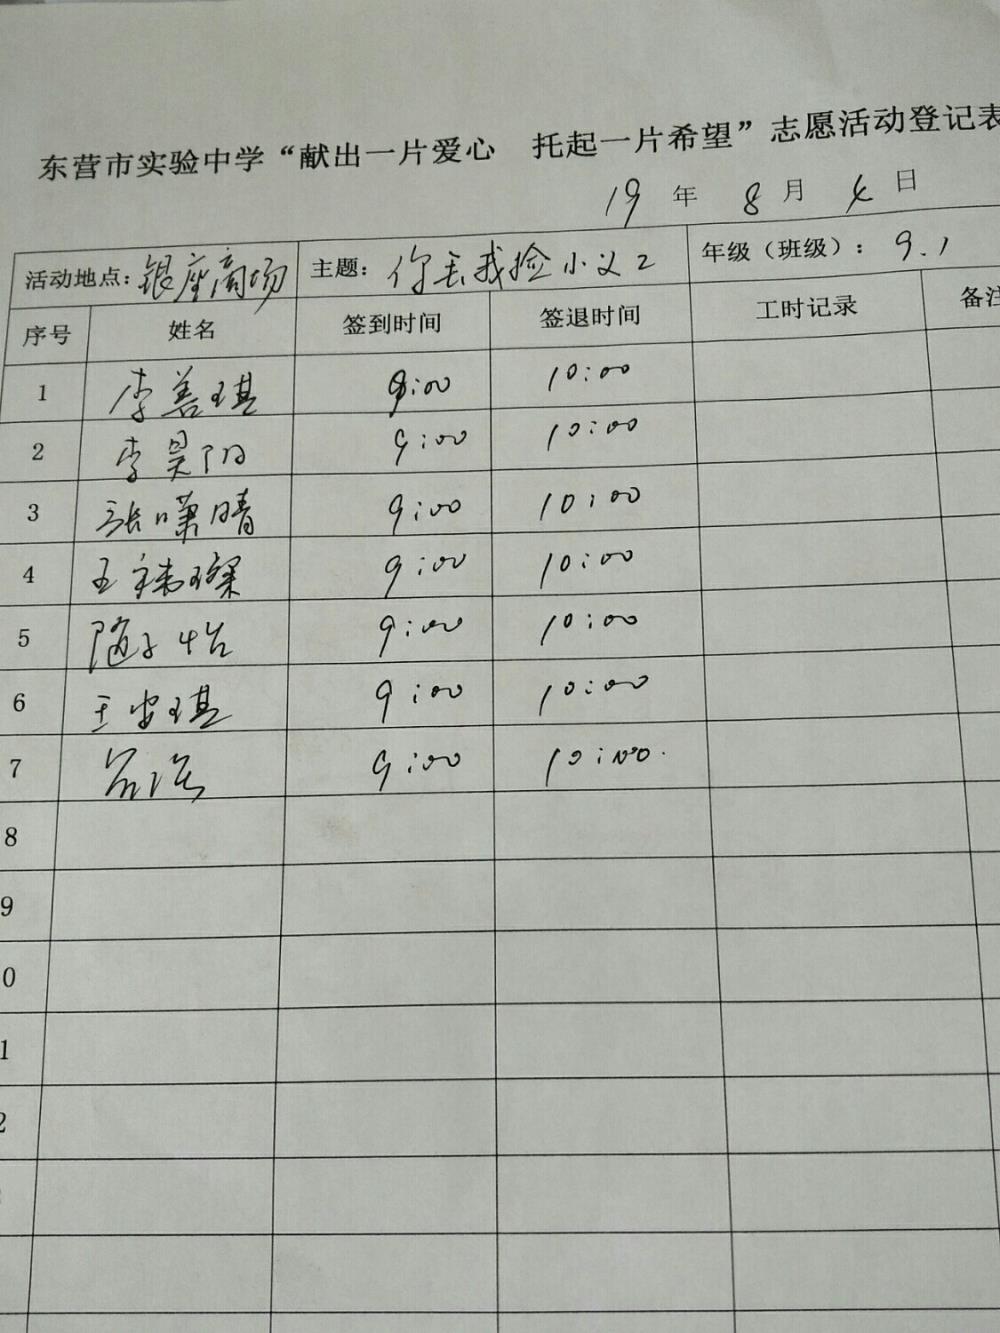 东营市实验中学“献出一片爱心 托起一片希望”志愿活动登记表
19 年 8 月 4 日
活动地点：银座商场 主题：你丢我捡小义工 年级（班级）：9.1
序号 姓名 签到时间 签退时间 工时记录 备注
1 李善琪 9:00 10:00
2 李昊阳 9:00 10:00
3 张啸晴 9:00 10:00
4 王祎璨 9:00 10:00
5 随子怡 9:00 10:00
6 王安琪 9:00 10:00
7 9:00 10:00
8
9
0
1
2